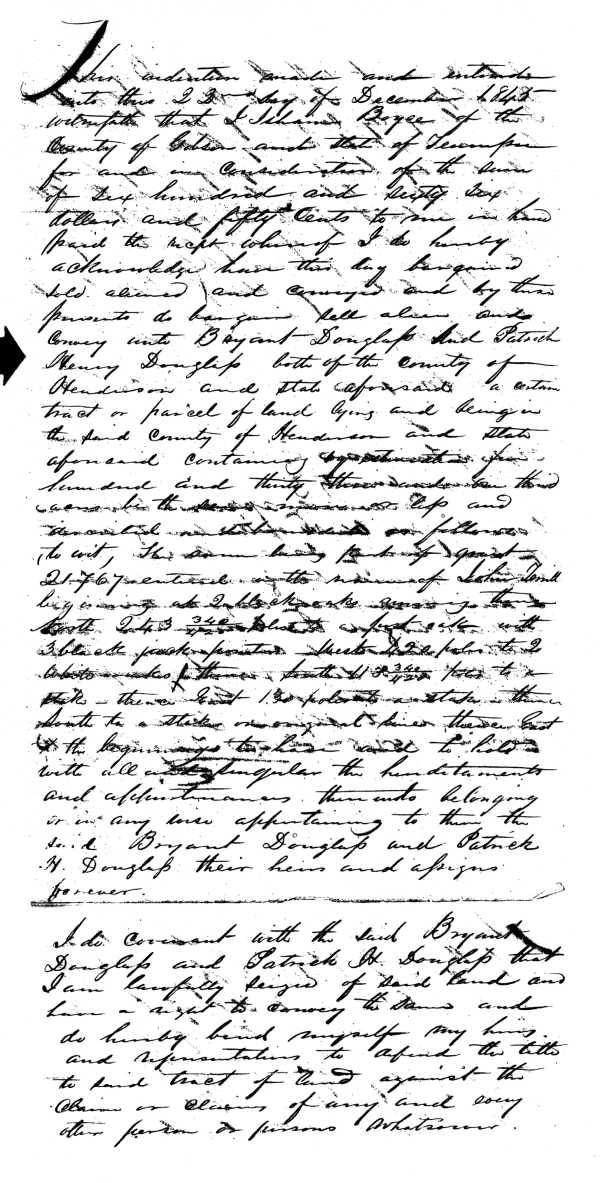 This indention made and entered
into this 23rd day of December 1845
witnesseth that I Isham Boyce of the
County of Gibson and State of Tennessee
for and in consideration of the sum
of Six hundred and sixty six
dollars and fifty Cents to me in hand
paid the recpt whereof I do hereby
acknowledge have this day bargained
sold aliened and conveyed and by these
presents do bargain sell alien and
Convey unto Bryant Douglass and Patrick
Henry Douglass both of the county of
Henderson and state aforesaid a certain
tract or parcel of land lying and being in
the said county of Henderson and State
aforesaid containing
hundred and thirty three and one third
acres be the same more or less and
as follows
to wit, The same being part of grant
21767 entered in the name of John Terrell
beginning at 2 black oaks running thence
South 243 340/425 poles to a post oak with
3 black jack pointers West 424 poles to 2
White oaks thence South 118 340/425 poles to a
stake thence East 130 poles to a stake thence
South to a stake on original line thence East
to the beginning to have and to hold
with all and singular the hereditaments
and appurtenances thereunto belonging
or in any wise appertaining to them the
said Bryant Douglass and Patrick
H Douglass their heirs and assigns
forever.
I do covenant with the said Bryant
Douglass and Patrick H Douglass that
I am lawfully seized of said land and
have a right to convey the same and
do hereby bind myself my heirs
and representatives to defend the title
to said tract of land against the
Claim or claims of any and every
other person or persons whatsoever.